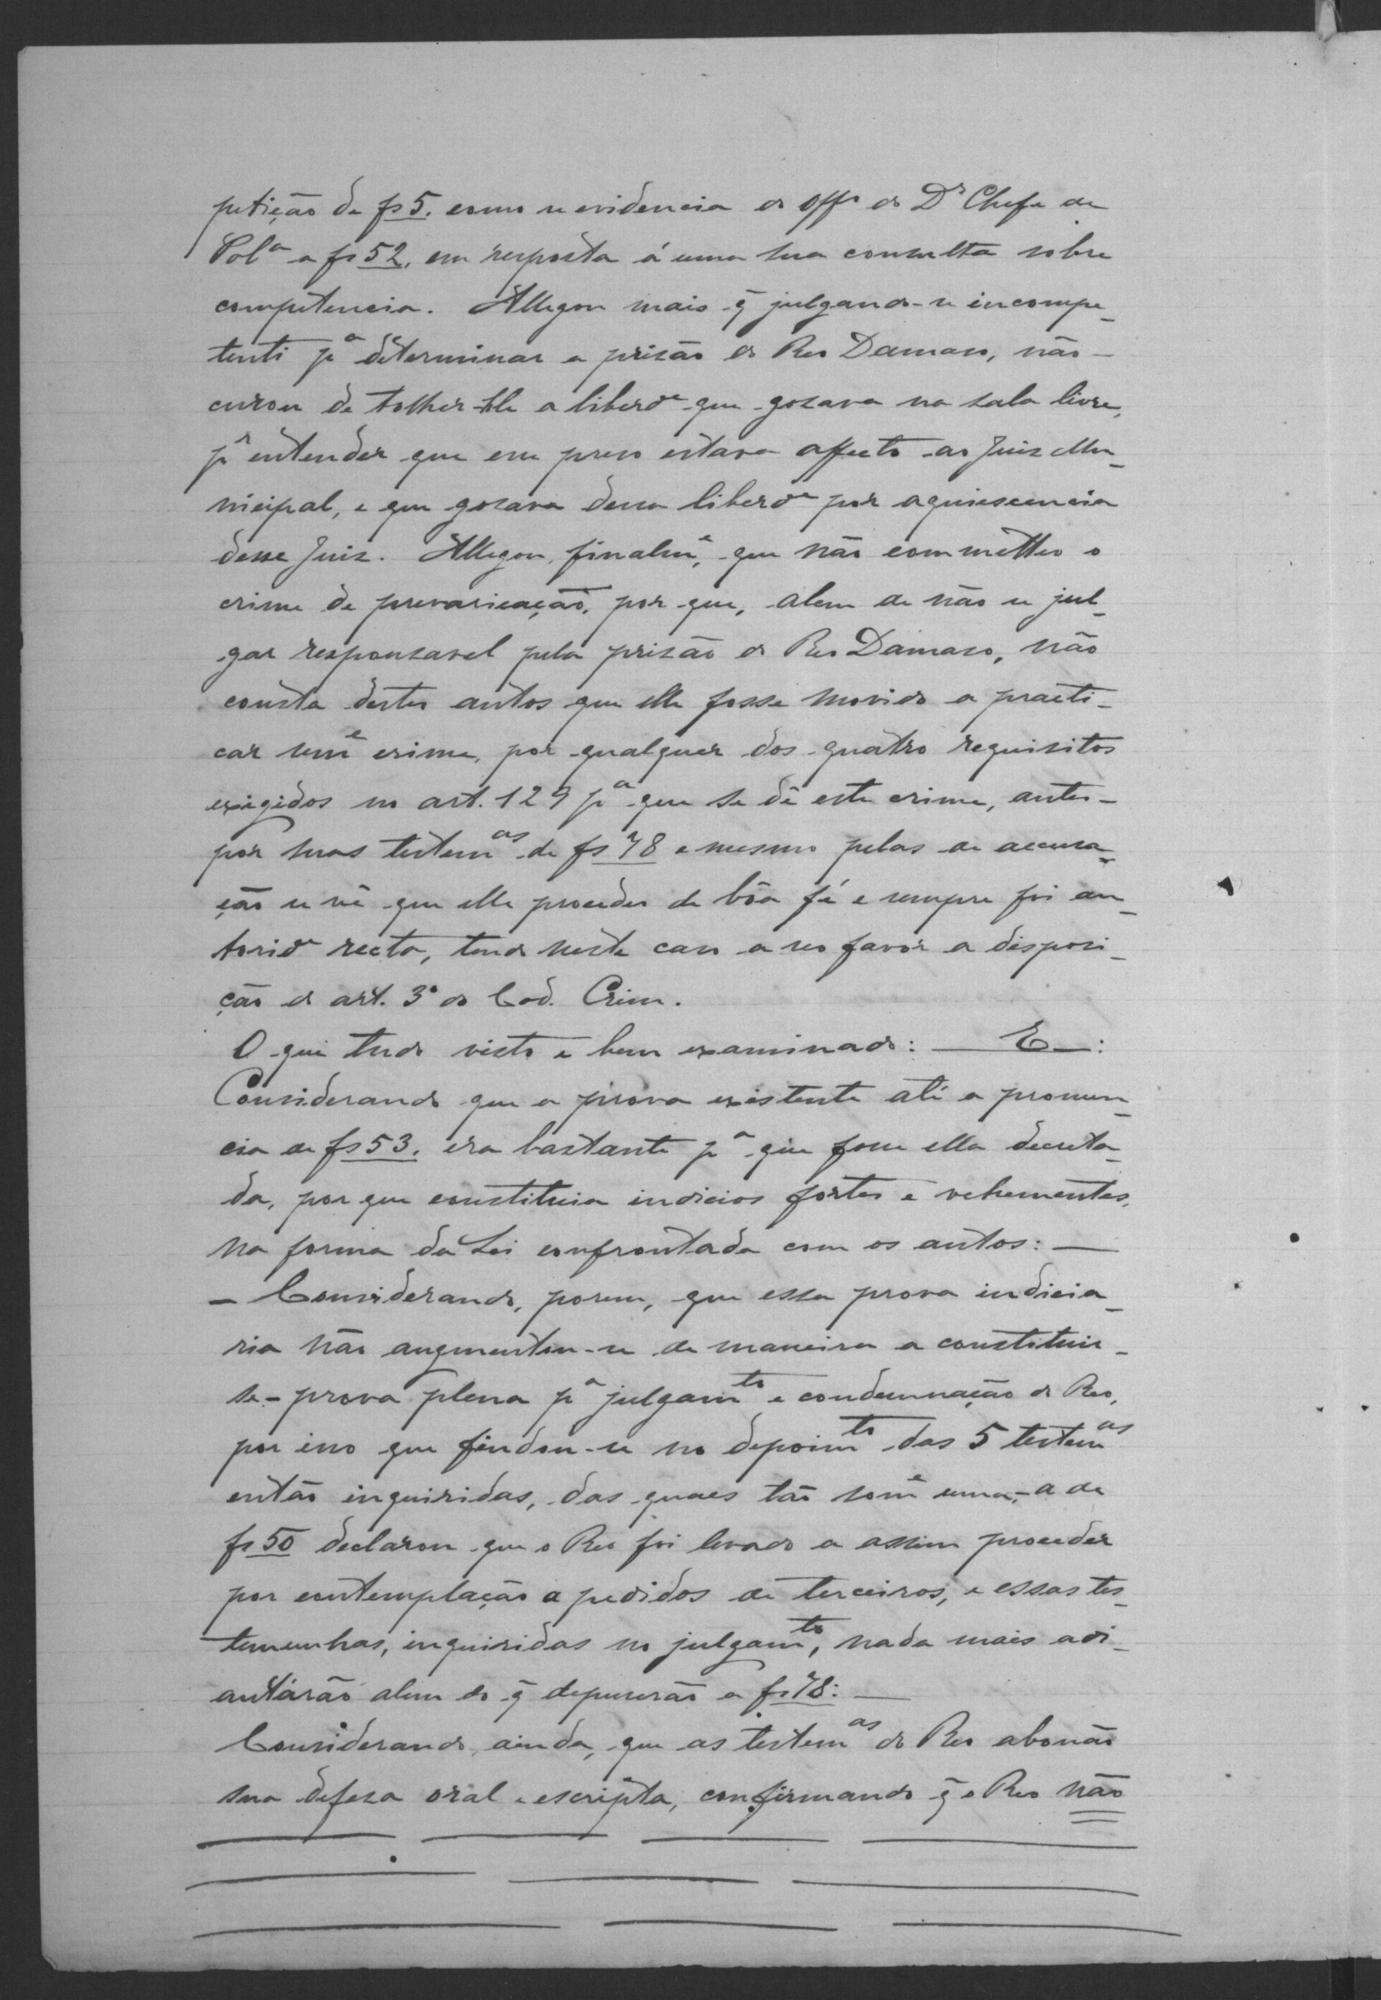 petição de fs 5. como se evidencia do Offº do Dr Chefe de
Polª a fs 52, em resposta á uma sua consulta sobre
competencia. Allegou mais q̃ julgando-se incompe-
tente pª determinar a prisão do Reo Damaso, não-
curou de tolher-lhe a liberdᵉ que gosava na sala livre,
pʳ entender que esse preso estava affecto ao Juiz Mu-
nicipal, e que gosava dessa liberdᵉ por aquiescencia
desse Juiz. Allegou, finalmᵉ, que não commetteo o
crime de prevaricação, por que, alem de não se jul-
gar responsavel pela prisão do Reo Damaso, não
consta destes autos que elle fosse movido a practi-
car semᵉ crime, por qualquer dos quatro requisitos
exigidos no art. 129 pª que se dê este crime, antes-
por suas testemᵃˢ de fs 78 e mesmo pelas de accusa-
ção se vê que elle procedeo de bôa fé e sempre foi au-
toridᵉ recta, tendo neste caso a seo favor a disposi-
ção do art. 3º do Cod. Crim.
O que tudo visto e bem examinado: — E —:
Considerando que a prova existente até a pronun-
cia de fs 53. era bastante pª que fosse ella decreta-
da, por que constituia indicios fortes e vehementes,
na forma da Lei confrontada com os autos: —
— Considerando, porem, que essa prova indicia-
ria não augmentou-se de maneira a constituir-
se-prova plena pª julgamᵗᵒ e condemnação do Reo,
por isso que findou-se no depoimᵗᵒ das 5 testemᵃˢ
então inquiridas, das quaes tão somᵉ uma,-a de
fs 50 declarou que o Reo foi levado a assim proceder
por contemplação a pedidos de terceiros, e essas tes-
temunhas, inquiridas no julgamᵗᵒ, nada mais adi-
antárão alem do q̃ depuserão a fs 78: —
Considerando, ainda, que as testemᵃˢ do Reo abonão
sua defesa oral e escripta, confirmando q̃ o Reo não